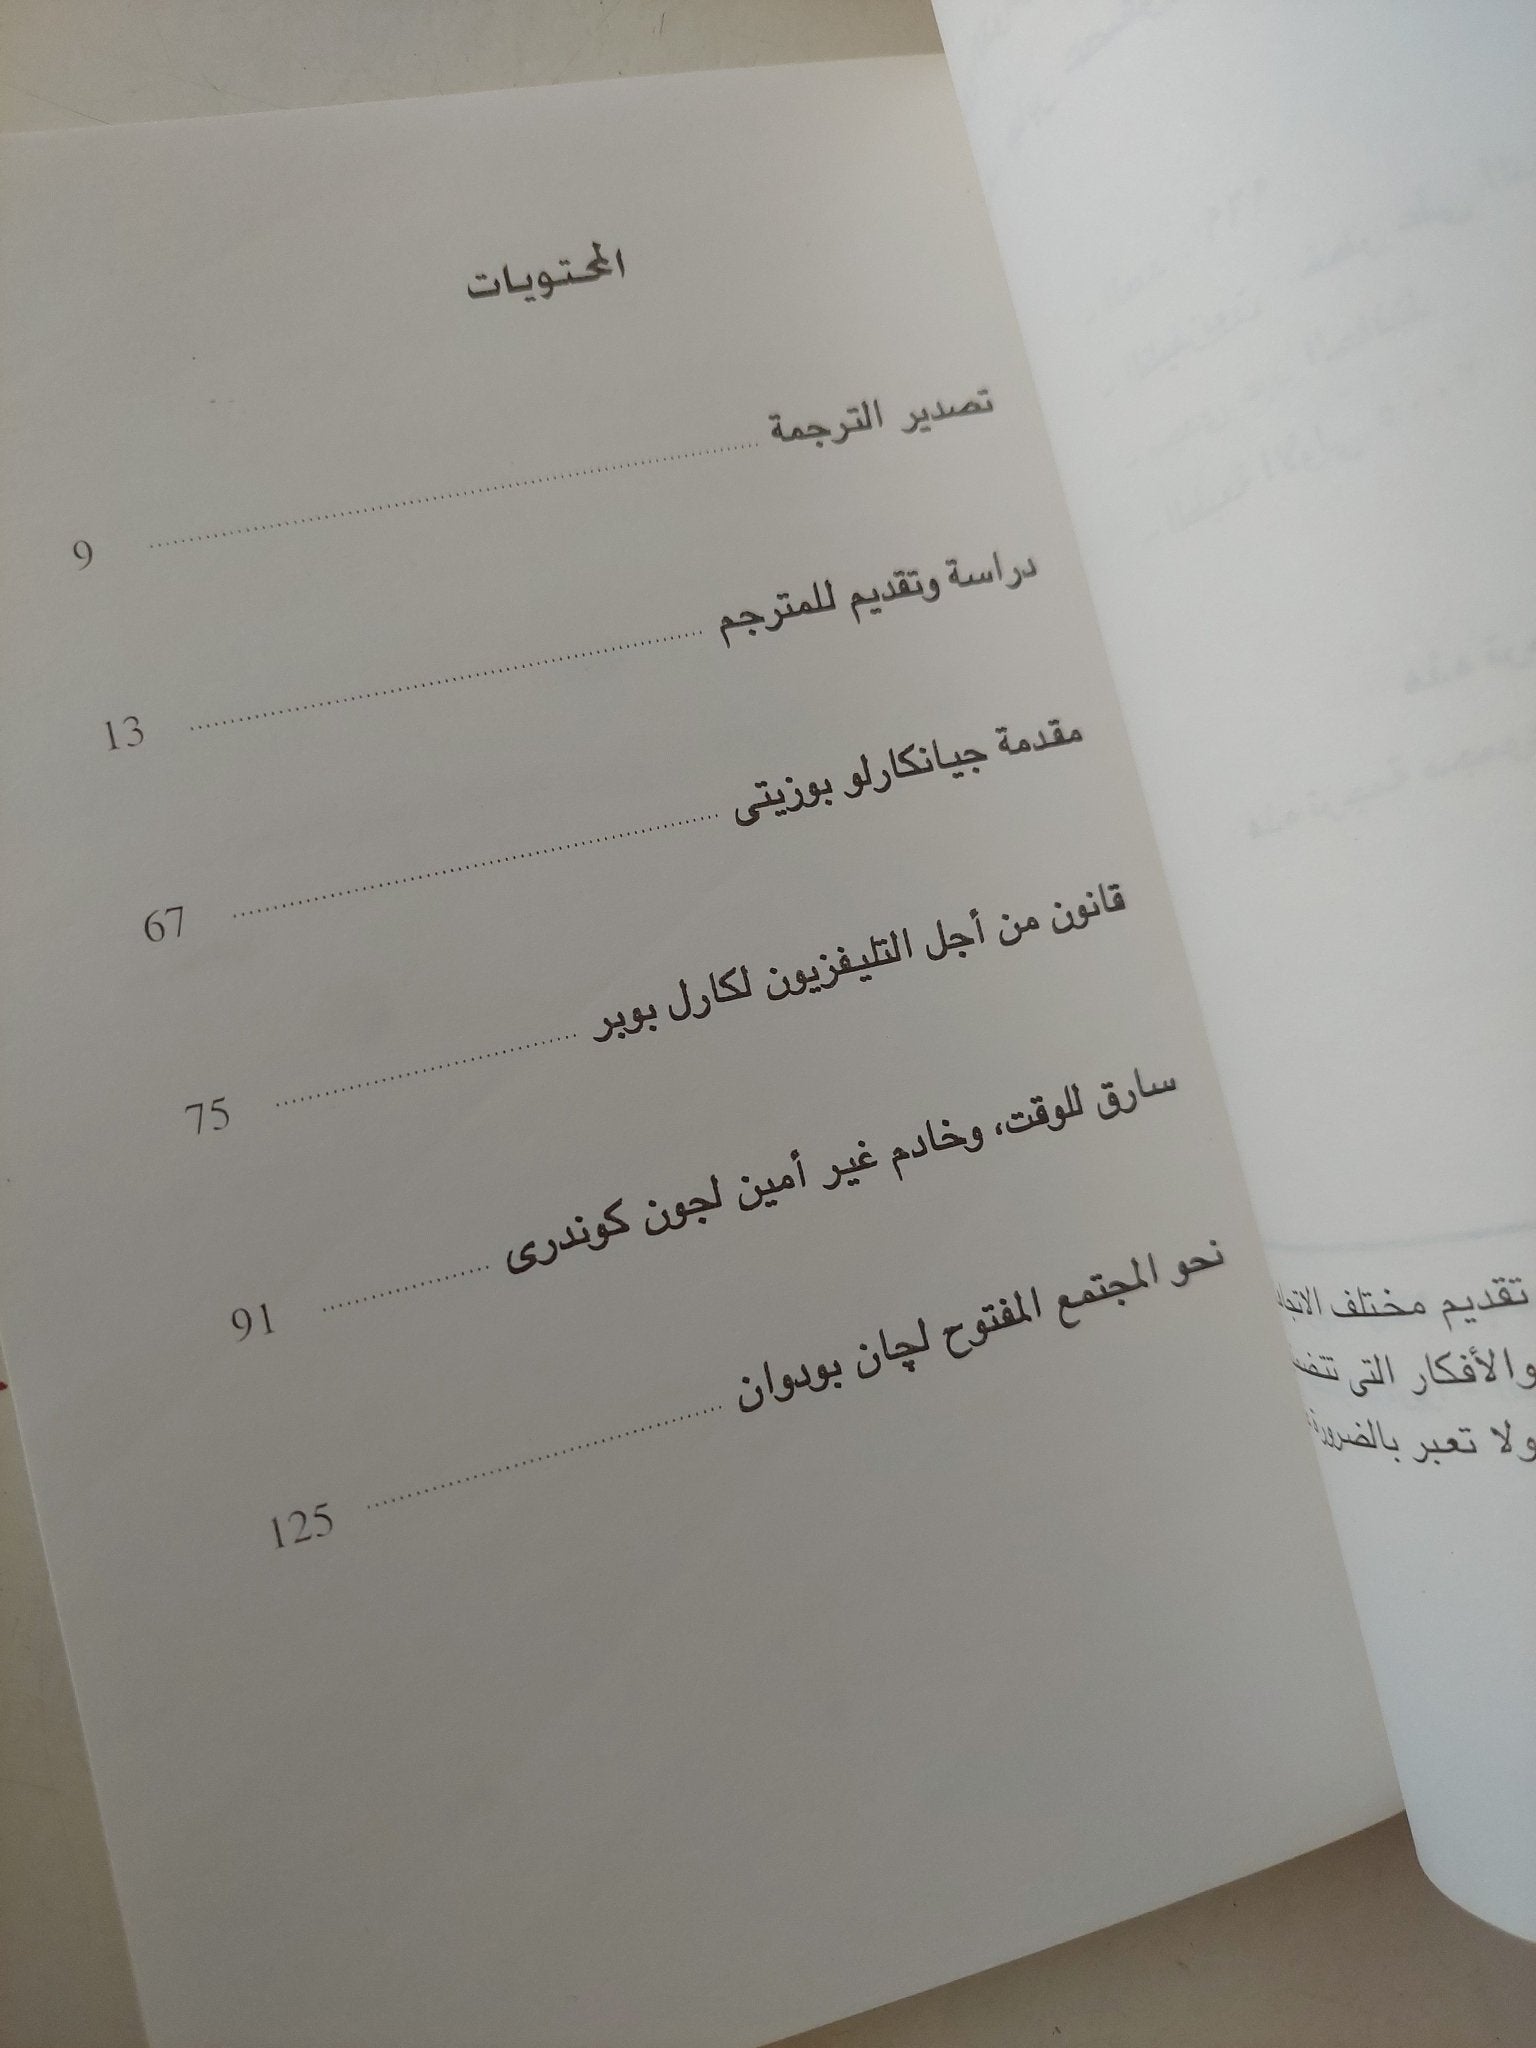 المحتويات
تصدير الترجمة ........ 9
دراسة وتقديم للمترجم ........ 13
مقدمة جيانكارلو بوزيتى ........ 67
قانون من أجل التليفزيون لكارل بوبر ........ 75
سارق للوقت، وخادم غير أمين لجون كوندرى ........ 91
نحو المجتمع المفتوح لچان بودوان ........ 125
تقديم مختلف
والأفكار التى
ولا تعبر بالضرورة